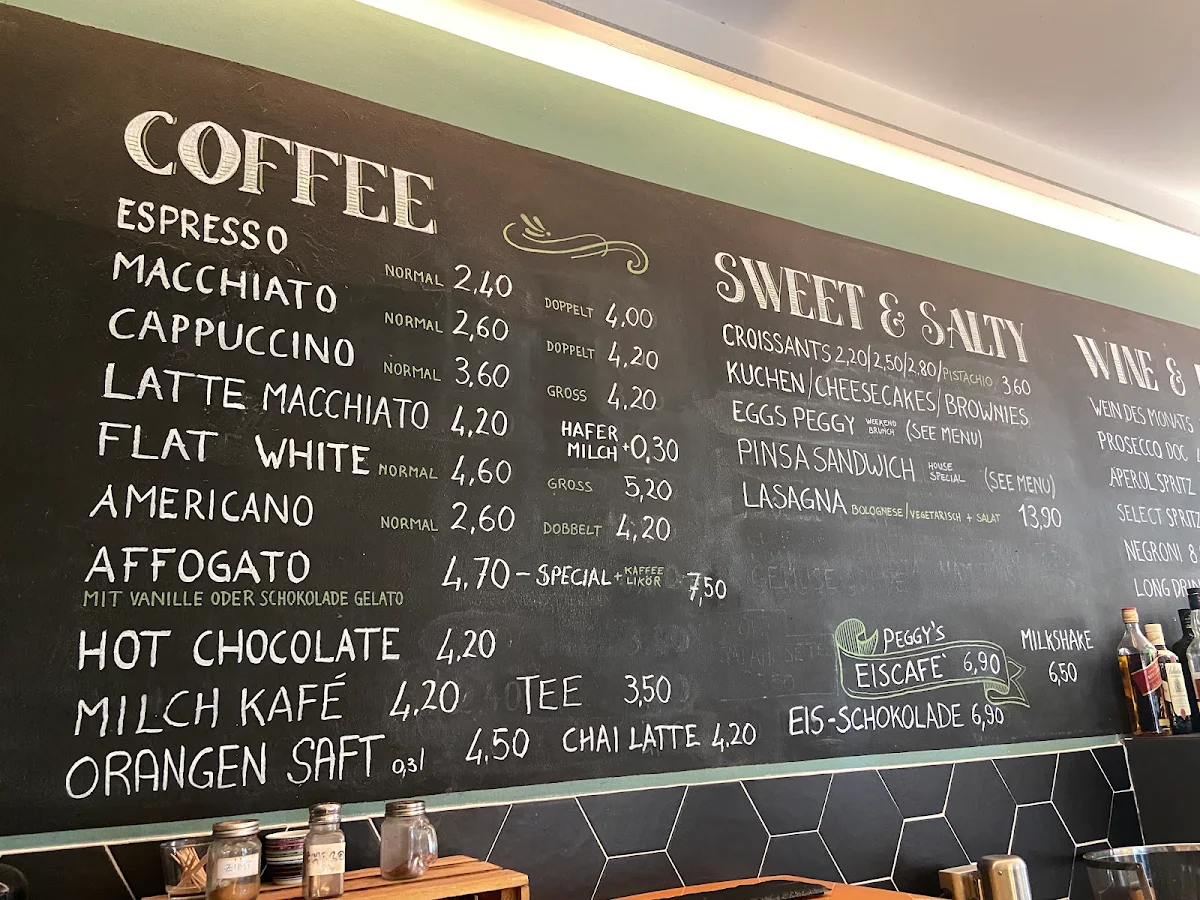 COFFEE
ESPRESSO NORMAL 2,40 DOPPELT 4,00
MACCHIATO NORMAL 2,60 DOPPELT 4,20
CAPPUCCINO NORMAL 3,60 GROSS 4,20
LATTE MACCHIATO 4,20 HAFER MILCH +0,30
FLAT WHITE NORMAL 4,60 GROSS 5,20
AMERICANO NORMAL 2,60 DOBBELT 4,20
AFFOGATO 4,70 - SPECIAL + KAFFEE LIKÖR 7,50
MIT VANILLE ODER SCHOKOLADE GELATO
HOT CHOCOLATE 4,20
MILCH KAFÉ 4,20 TEE 3,50
ORANGEN SAFT 0,3l 4.50 CHAI LATTE 4,20
SWEET & SALTY
CROISSANTS 2,20/2,50/2,80/PISTACHIO 3,60
KUCHEN/CHEESECAKES/BROWNIES
EGGS PEGGY WEEKEND BRUNCH (SEE MENU)
PINSA SANDWICH HOUSE SPECIAL (SEE MENU)
LASAGNA BOLOGNESE/VEGETARISCH + SALAT 13,90
PEGGY'S
EISCAFE` 6,90
MILKSHAKE
6,50
EIS-SCHOKOLADE 6,90
WINE &
WEIN DES MONATS
PROSECCO DOC
APEROL SPRITZ
SELECT SPRITZ
NEGRONI
LONG